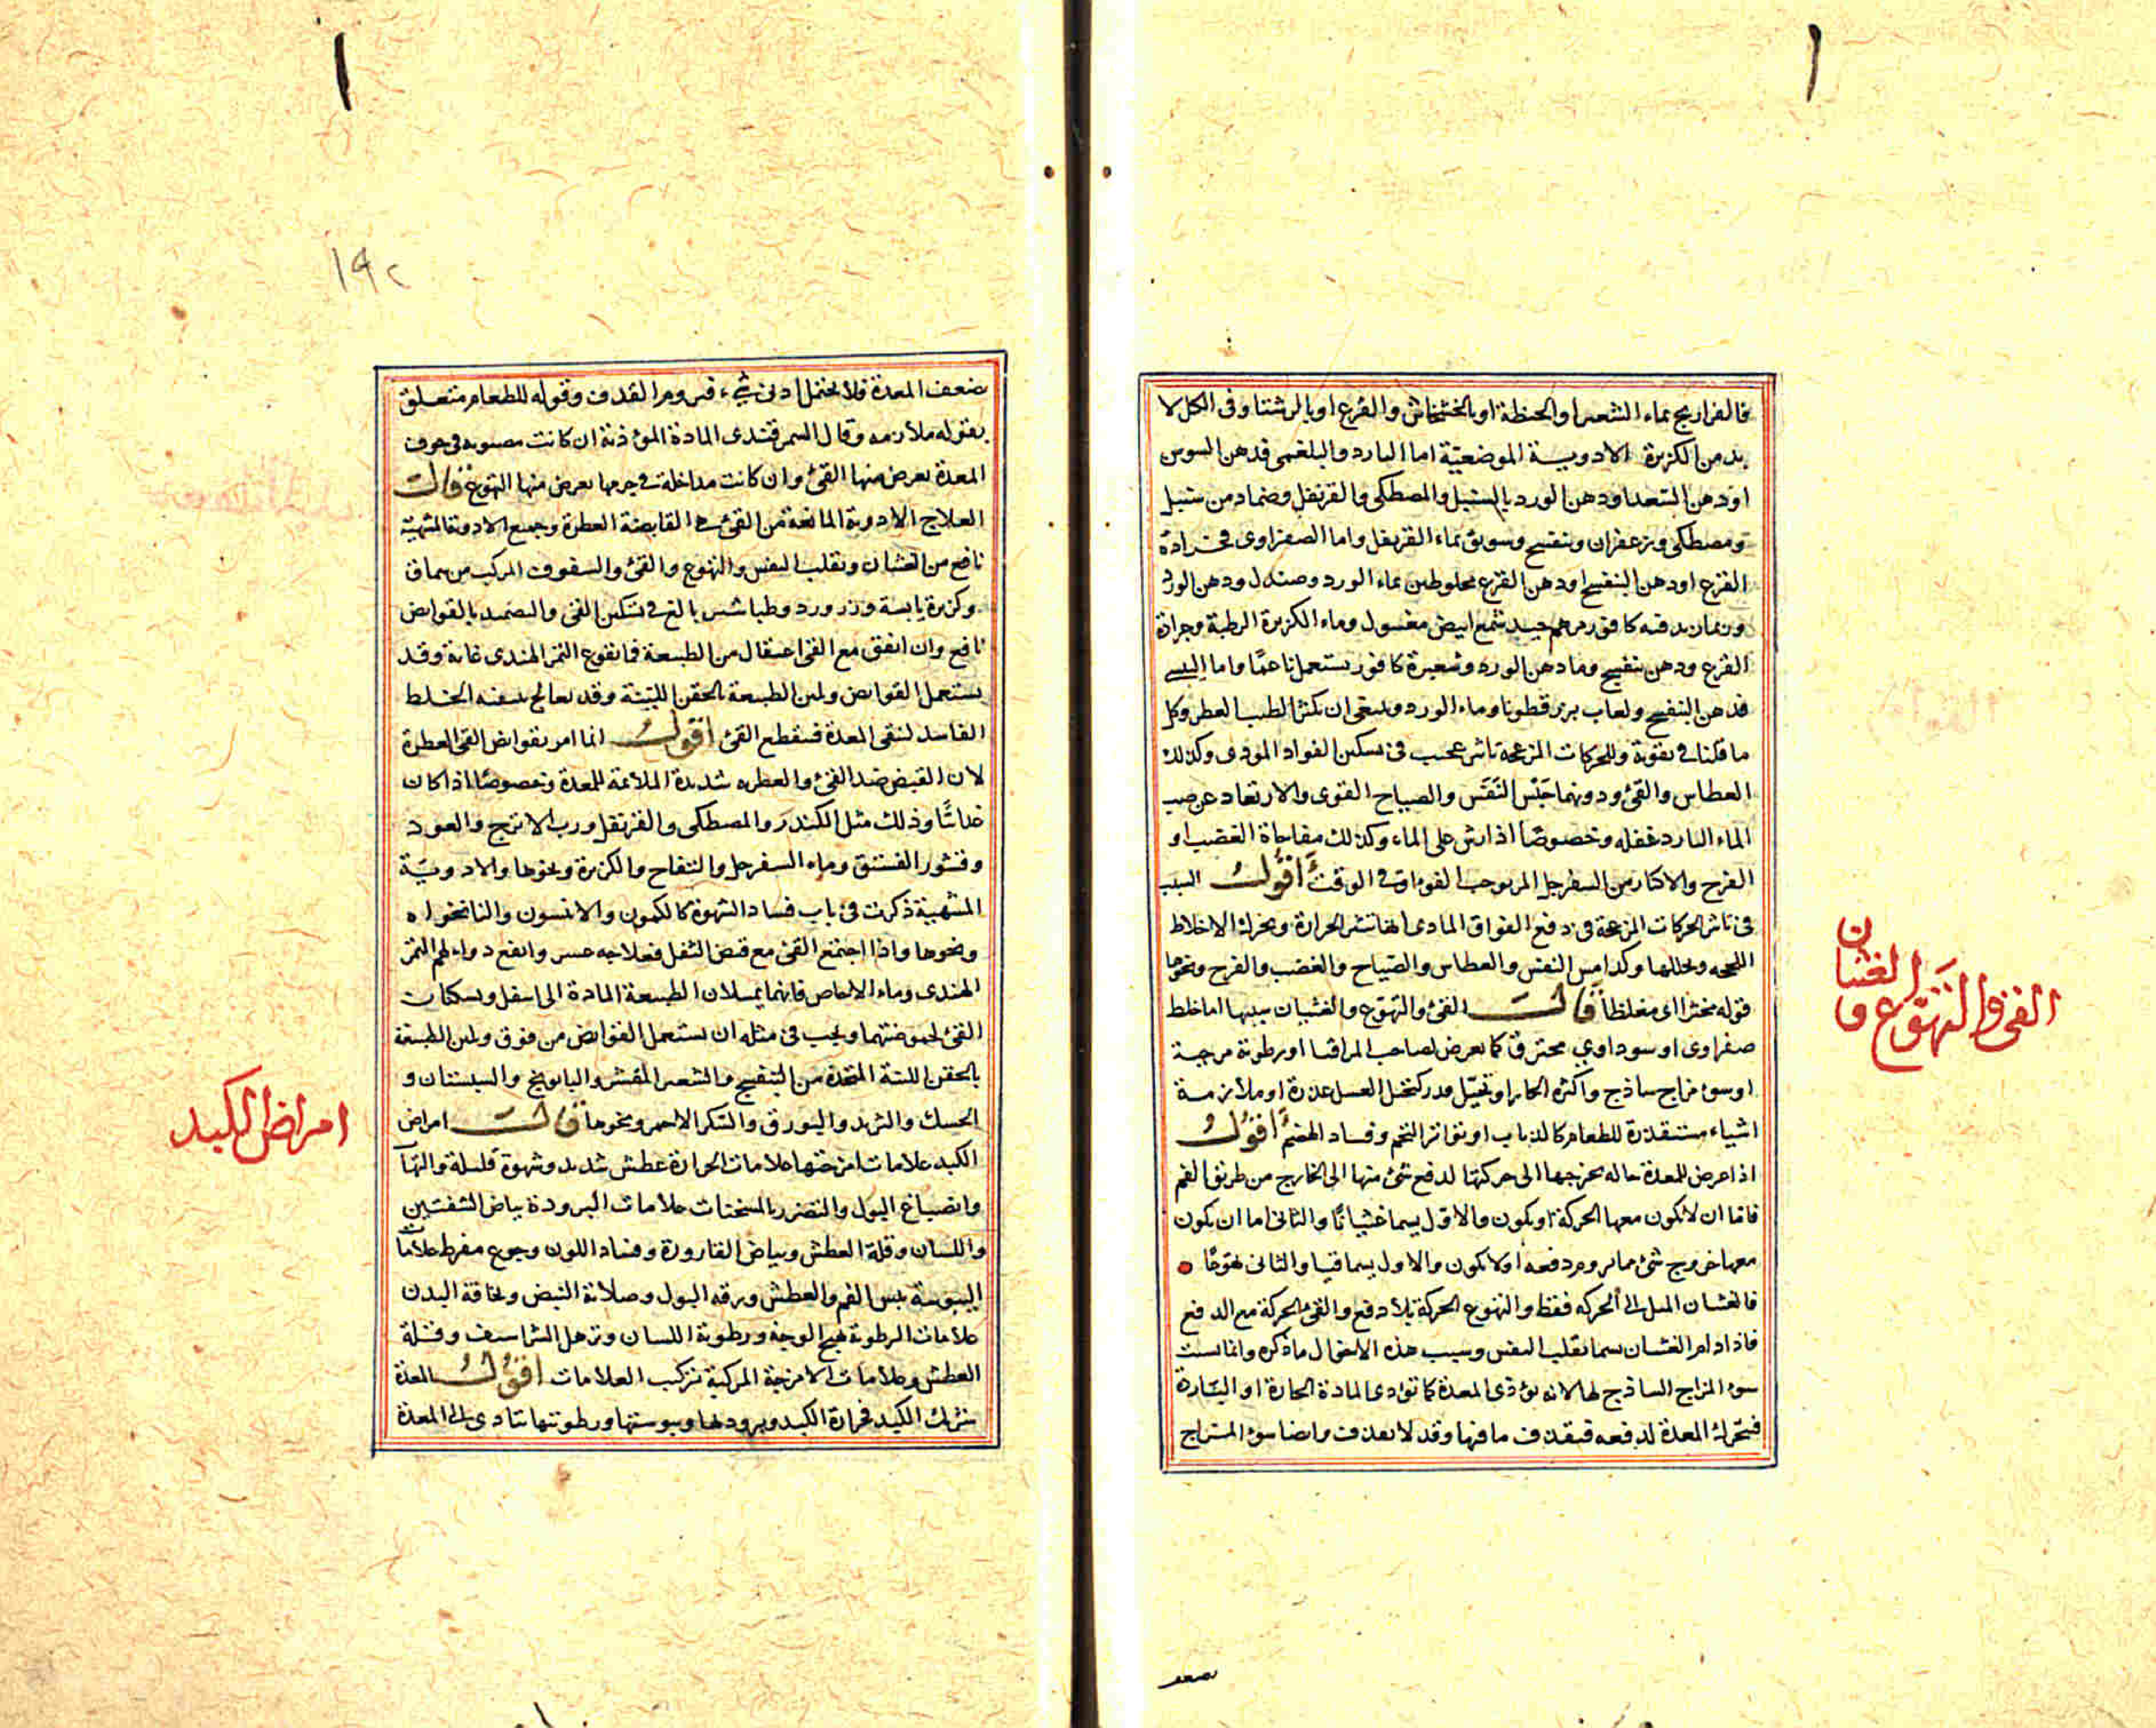 فالفراريج بماء الشعير او الحنطة او بالخشخاش والقرع او بالرشتا وفى الكل لا
بد من الكزبرة الادوية الموضعيّة اما البارد والبلغمى فدهن السوس
او دهن السعد او دهن الورد بالسنبل والمصطكى والقرنفل وضماد من سنبل
ومصطكى وزعفران وبنفسج وسويق بماء القرنفل واما الصفراوى فجرادة
القرع او دهن البنفسج او دهن القرع مخلوطين بماء الورد وصندل ودهن الورد
كافور مرهم جيد شمع ابيض مغسول وماء الكزبرة الرطبة وجرادة
القرع ودهن بنفسج وماء دهن الورد وشعيرة كافور يستعمل ناعمًا واما اليبسى
فدهن البنفسج ولعاب بزر قطونا وماء الورد وينبغى ان يكثر الطيب العطر وكل
ما قلنا فى تقوية وللحركات المزعجة تاثير عجيب فى تسكين الفواق المودى وكذلك
العطاس والقئ ودونهما حَبْس النَفَس والصياح القوى والارتعاد عن صب
الماء البارد غفلة وخصوصًا اذا رش على الماء وكذلك مفاجاة الغضب او
الفرح والاكثار من السفرجل المر يوجب الفواق فى الوقت أقول السبب
فى تاثير الحركات المزعجة فى دفع الفواق المادى انها تثير الحرارة وتحرك الاخلاط
اللحجة وتحللها وكذا حبس النفس والعطاس والصياح والغضب والفرح ونحوها
قوله مخثرا اى مغلظا قالَ القئ والتهوّع والغثيان سببها اما خلط
صفراوى او سوداوي محترق كما يعرض لصاحب المراقيا او رطوبة مرخية
او سوء مزاج ساذج واكثره الحار او تخيّل قدر كتخيل العسل عذرة او ملازمة
اشياء مستقذرة للطعام كالذباب او تواتر التخم وفساد الهضم أقولُ
اذا عرض للمعدة حالة تحوجها الى حركتها لدفع شئ منها الى الخارج من طريق الفم
فاما ان لا يكون معها الحركة او يكون والاول يسمى غثيانًا والثانى اما ان يكون
معها خروج شئ مما تروم دفعه او لا يكون والاول يسمى قيا والثانى تهوّعًا
فالغثيان الميل الى الحركة فقط والتهوع الحركة بلا دفع والقئ الحركة مع الدفع
فاذا دام الغثيان يسمى تقلب النفس وسبب هذه الافعال ما ذكره وانما سبب
سوء المزاج الساذج لها لانه يؤذى المعدة كما توذى المادة الحارة او الباردة
فتتحرك المعدة لدفعه فتقذف ما فيها وقد لا تقذف وايضا سوء المزاج
القئ والتهوّع و
الغثيان
يضعف المعدة فلا تحتمل ادنى شئ فتروم القذف وقوله للطعام متعلق
بقوله ملازمة وقال السمرقندى المادة المؤذية ان كانت مصبوبة فى جوف
المعدة يعرض منها القئ وان كانت مداخلة فى جرمها يعرض منها التهوع قالَ
العلاج الادوية المانعة من القئ هى القابضة العطرة وجميع الادوية المشهية
نافع من الغثيان وتقلب النفس والتهوع والقئ والسفوف المركب من سماق
وكزبرة يابسة وزر ورد وطباشير بالغ فى تسكين القئ والتضميد بالقوابض
نافع وان اتفق مع القئ اعتقال من الطبيعة فانقوع التمر الهندى غاية وقد
يستعمل القوابض ولين الطبيعة بالحقن اللينة وقد يعالج بسقيه الخلط
الفاسد لتنقى المعدة فينقطع القئ أقولُ انما امر بقوابض القئ العطرة
لان القبض ضد القئ والعطرية شديدة الملائمة للمعدة وخصوصًا اذا كان
غذائيًا وذلك مثل الكندر والمصطكى والقرنفل ورب الاترج والعود
وقشور الفستق وماء السفرجل والتفاح والكزبرة ونحوها والادويَة
المشهية ذكرت فى باب فساد الشهوة كالكمون والانيسون والنانخواه
ونحوها واذا اجتمع القئ مع قبض الثفل فعلاجه عسر وانفع دواء لهم التمر
الهندى وماء الاجاص فانهما يميلان الطبيعة المادة الى اسفل ويسكنان
القئ لحموضتهما ويجب فى مثله ان يستعمل القوابض من فوق ولين الطبيعة
بالحقن اللينة المتخذة من البنفسج والشعير المقشر والبابونج والسبستان و
الحسك والتربد والبورق والسكر الاحمر ونحوها قالَ امراض
الكبد علامات امزجتها علامات الحرارة عطش شديد وشهوة قليلة والتهاب
وانصباغ البول والتضرر بالمسخنات علامات البرودة بياض الشفتين
واللسان وقلة العطش وبياض القارورة وفساد اللون وجوع مفرط علامات
اليبوسة يبس الفم والعطش ورقة البول وصلابة النبض ونحافة البدن
علامات الرطوبة تهيج الوجه ورطوبة اللسان وترهل الشراسيف وقلة
العطش وعلامات الامزجة المركبة تركب العلامات أقولُ المعدة
تشارك الكبد فحرارة الكبد وبرودتها ويبوستها ورطوبتها تتادى الى المعدة
امراض الكبد
١٩٢